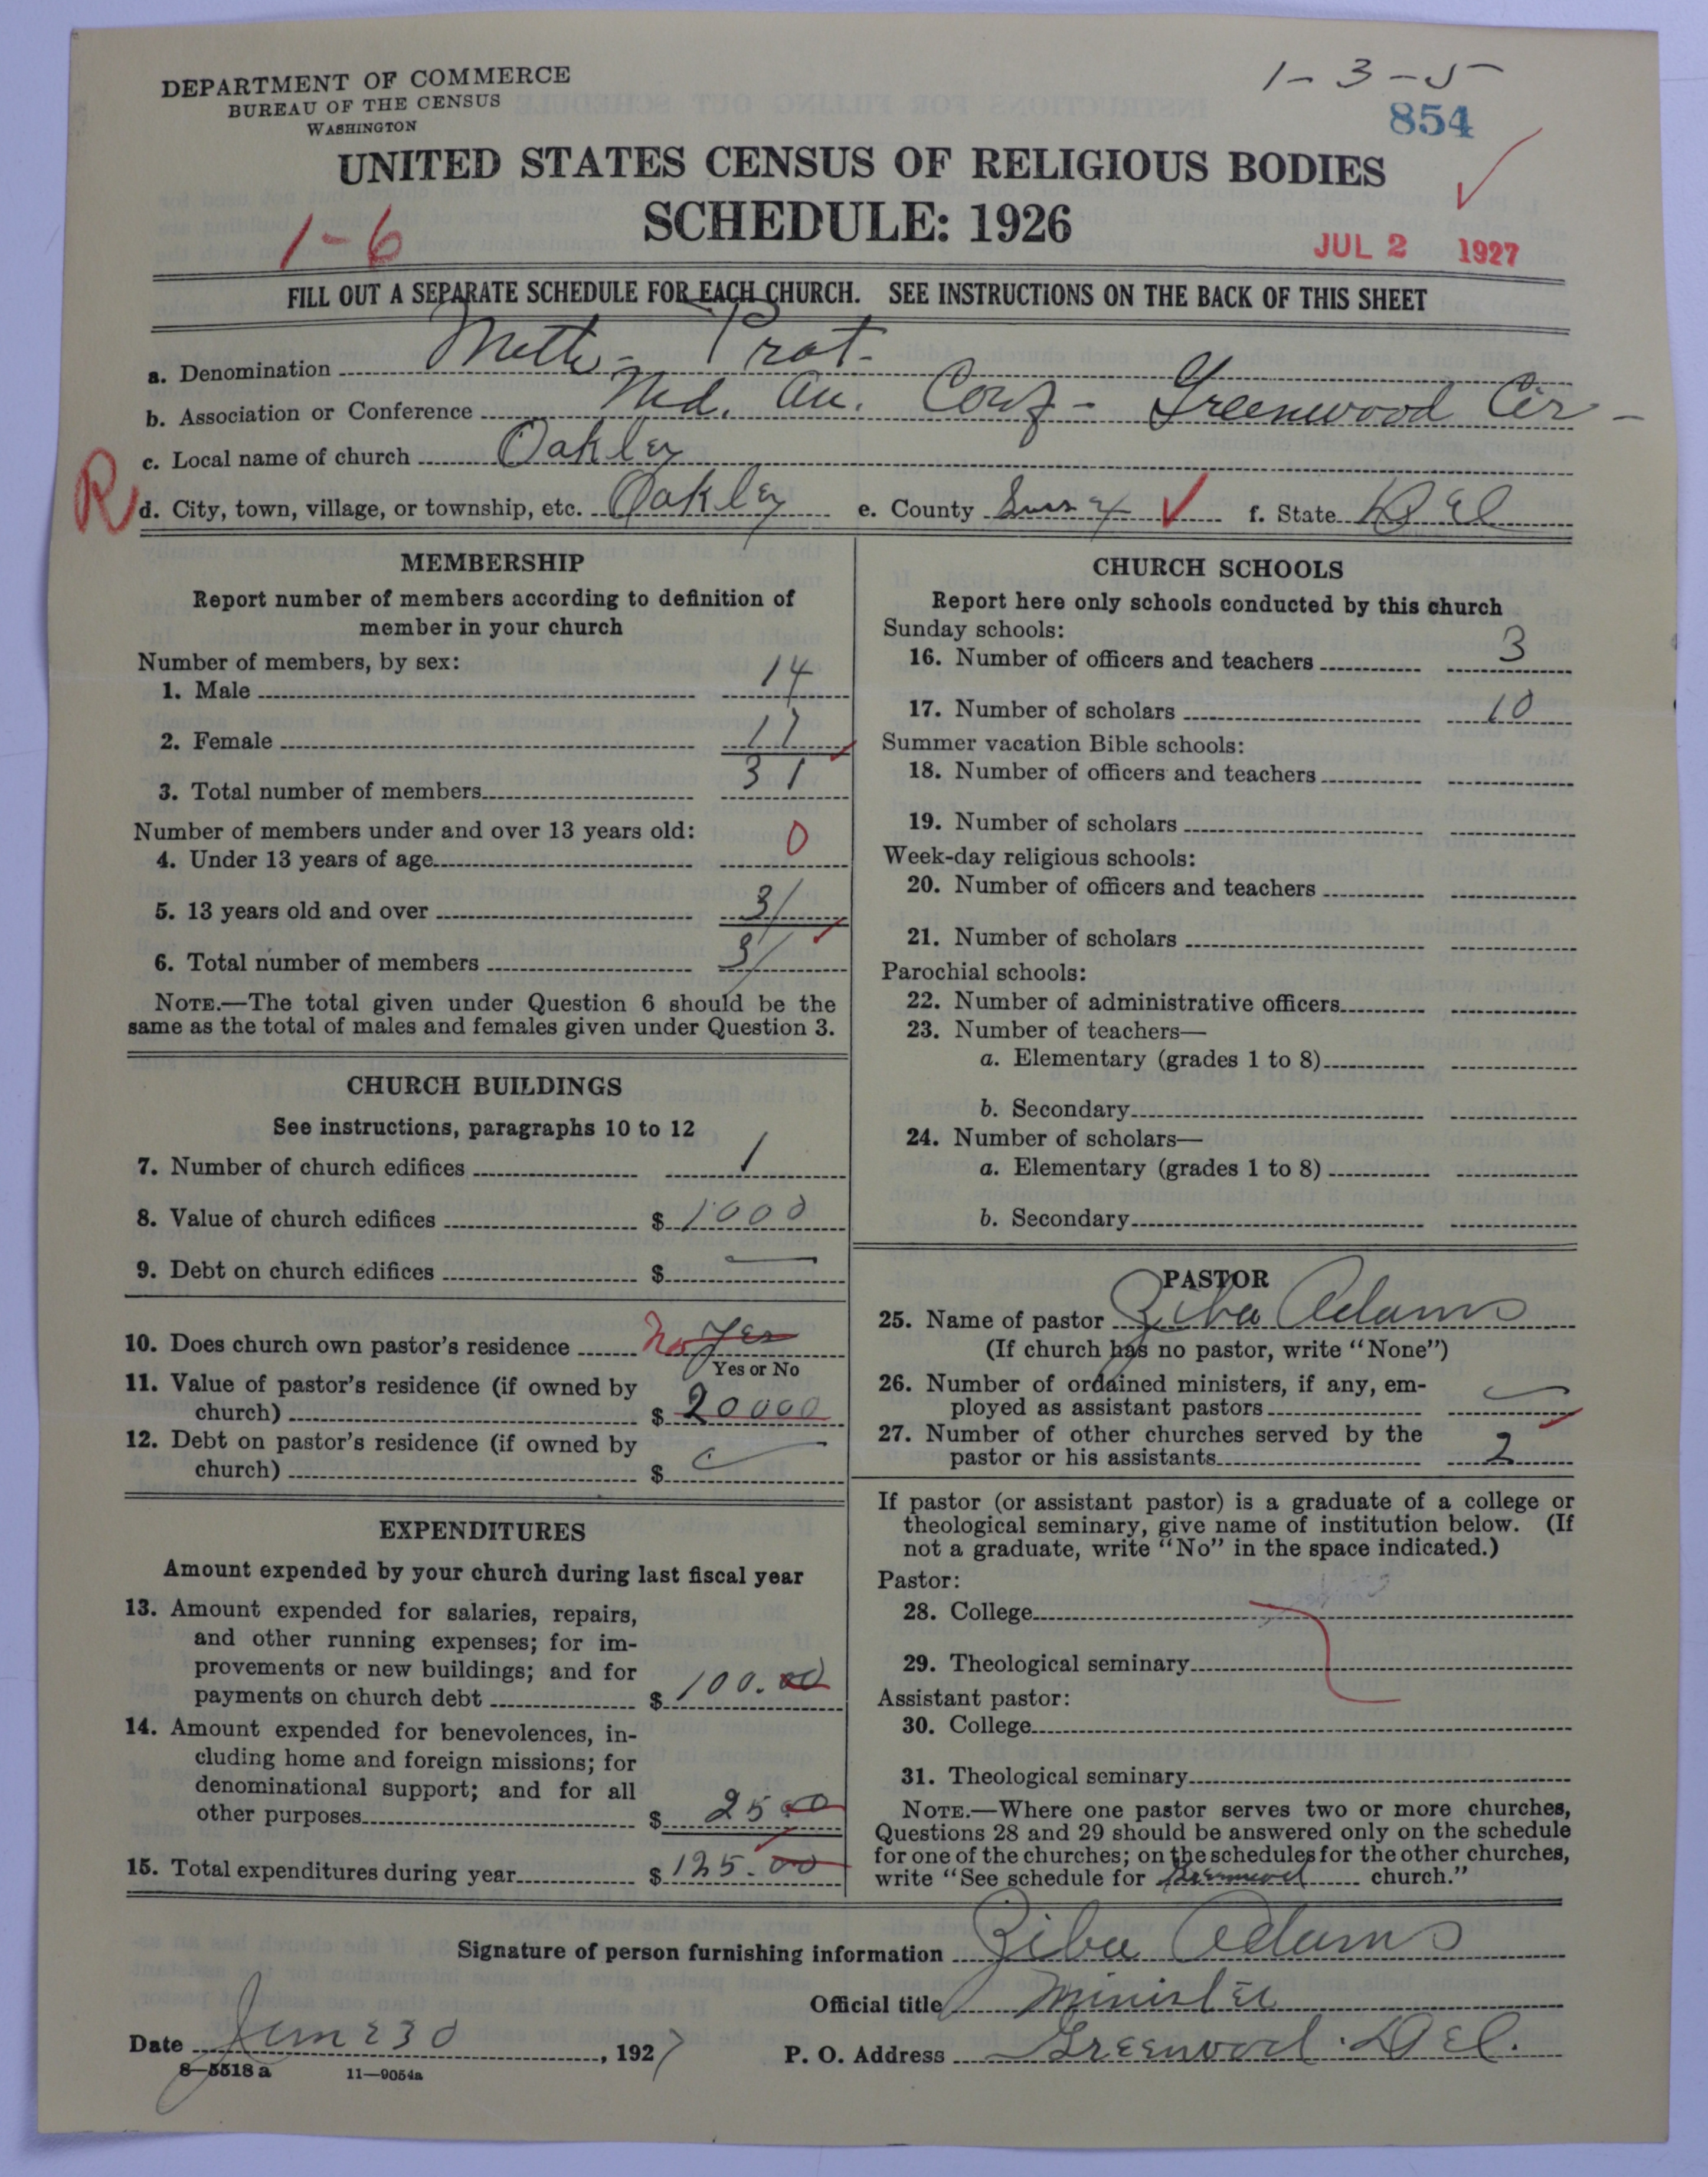 DEPARTMENT OF COMMERCE
BUREAU OF THE CENSUS
WASHINGTON
1-3-5
854
UNITED STATES CENSUS OF RELIGIOUS BODIES
SCHEDULE: 1926
1-6
JUL 2 1927
FILL OUT A SEPARATE SCHEDULE FOR EACH CHURCH. SEE INSTRUCTIONS ON THE BACK OF THIS SHEET
a. Denomination Meth- Prot-
b. Association or Conference Md. An. Conf- Greenwood Cir-
c. Local name of church Oakley
R d. City, town, village, or township, etc. Oakley e. County Sussex ✓ f. State Del
MEMBERSHIP
Report number of members according to definition of
member in your church
Number of members, by sex:
1. Male 14
2. Female 17
3. Total number of members 31
Number of members under and over 13 years old:
4. Under 13 years of age 0
5. 13 years old and over 31
6. Total number of members 31
NOTE.—The total given under Question 6 should be the
same as the total of males and females given under Question 3.
CHURCH BUILDINGS
See instructions, paragraphs 10 to 12
7. Number of church edifices 1
8. Value of church edifices $ 1000
9. Debt on church edifices $ —
10. Does church own pastor's residence No Yes
Yes or No
11. Value of pastor's residence (if owned by
church) $ 20000
12. Debt on pastor's residence (if owned by
church) $
EXPENDITURES
Amount expended by your church during last fiscal year
13. Amount expended for salaries, repairs,
and other running expenses; for im-
provements or new buildings; and for
payments on church debt $ 100.00
14. Amount expended for benevolences, in-
cluding home and foreign missions; for
denominational support; and for all
other purposes $ 25 00
15. Total expenditures during year $ 125.00
CHURCH SCHOOLS
Report here only schools conducted by this church
Sunday schools:
16. Number of officers and teachers 3
17. Number of scholars 10
Summer vacation Bible schools:
18. Number of officers and teachers
19. Number of scholars
Week-day religious schools:
20. Number of officers and teachers
21. Number of scholars
Parochial schools:
22. Number of administrative officers
23. Number of teachers—
a. Elementary (grades 1 to 8)
b. Secondary
24. Number of scholars—
a. Elementary (grades 1 to 8)
b. Secondary
PASTOR
25. Name of pastor Ziba Adams
(If church has no pastor, write "None")
26. Number of ordained ministers, if any, em-
ployed as assistant pastors
27. Number of other churches served by the
pastor or his assistants 2
If pastor (or assistant pastor) is a graduate of a college or
theological seminary, give name of institution below. (If
not a graduate, write "No" in the space indicated.)
Pastor:
28. College
29. Theological seminary
Assistant pastor:
30. College
31. Theological seminary
NOTE.—Where one pastor serves two or more churches,
Questions 28 and 29 should be answered only on the schedule
for one of the churches; on the schedules for the other churches,
write "See schedule for Greenwood church."
Signature of person furnishing information Ziba Adams
Official title Minister
Date June 30, 1927 P. O. Address Greenwood. Del.
8-5518 a 11—9054a